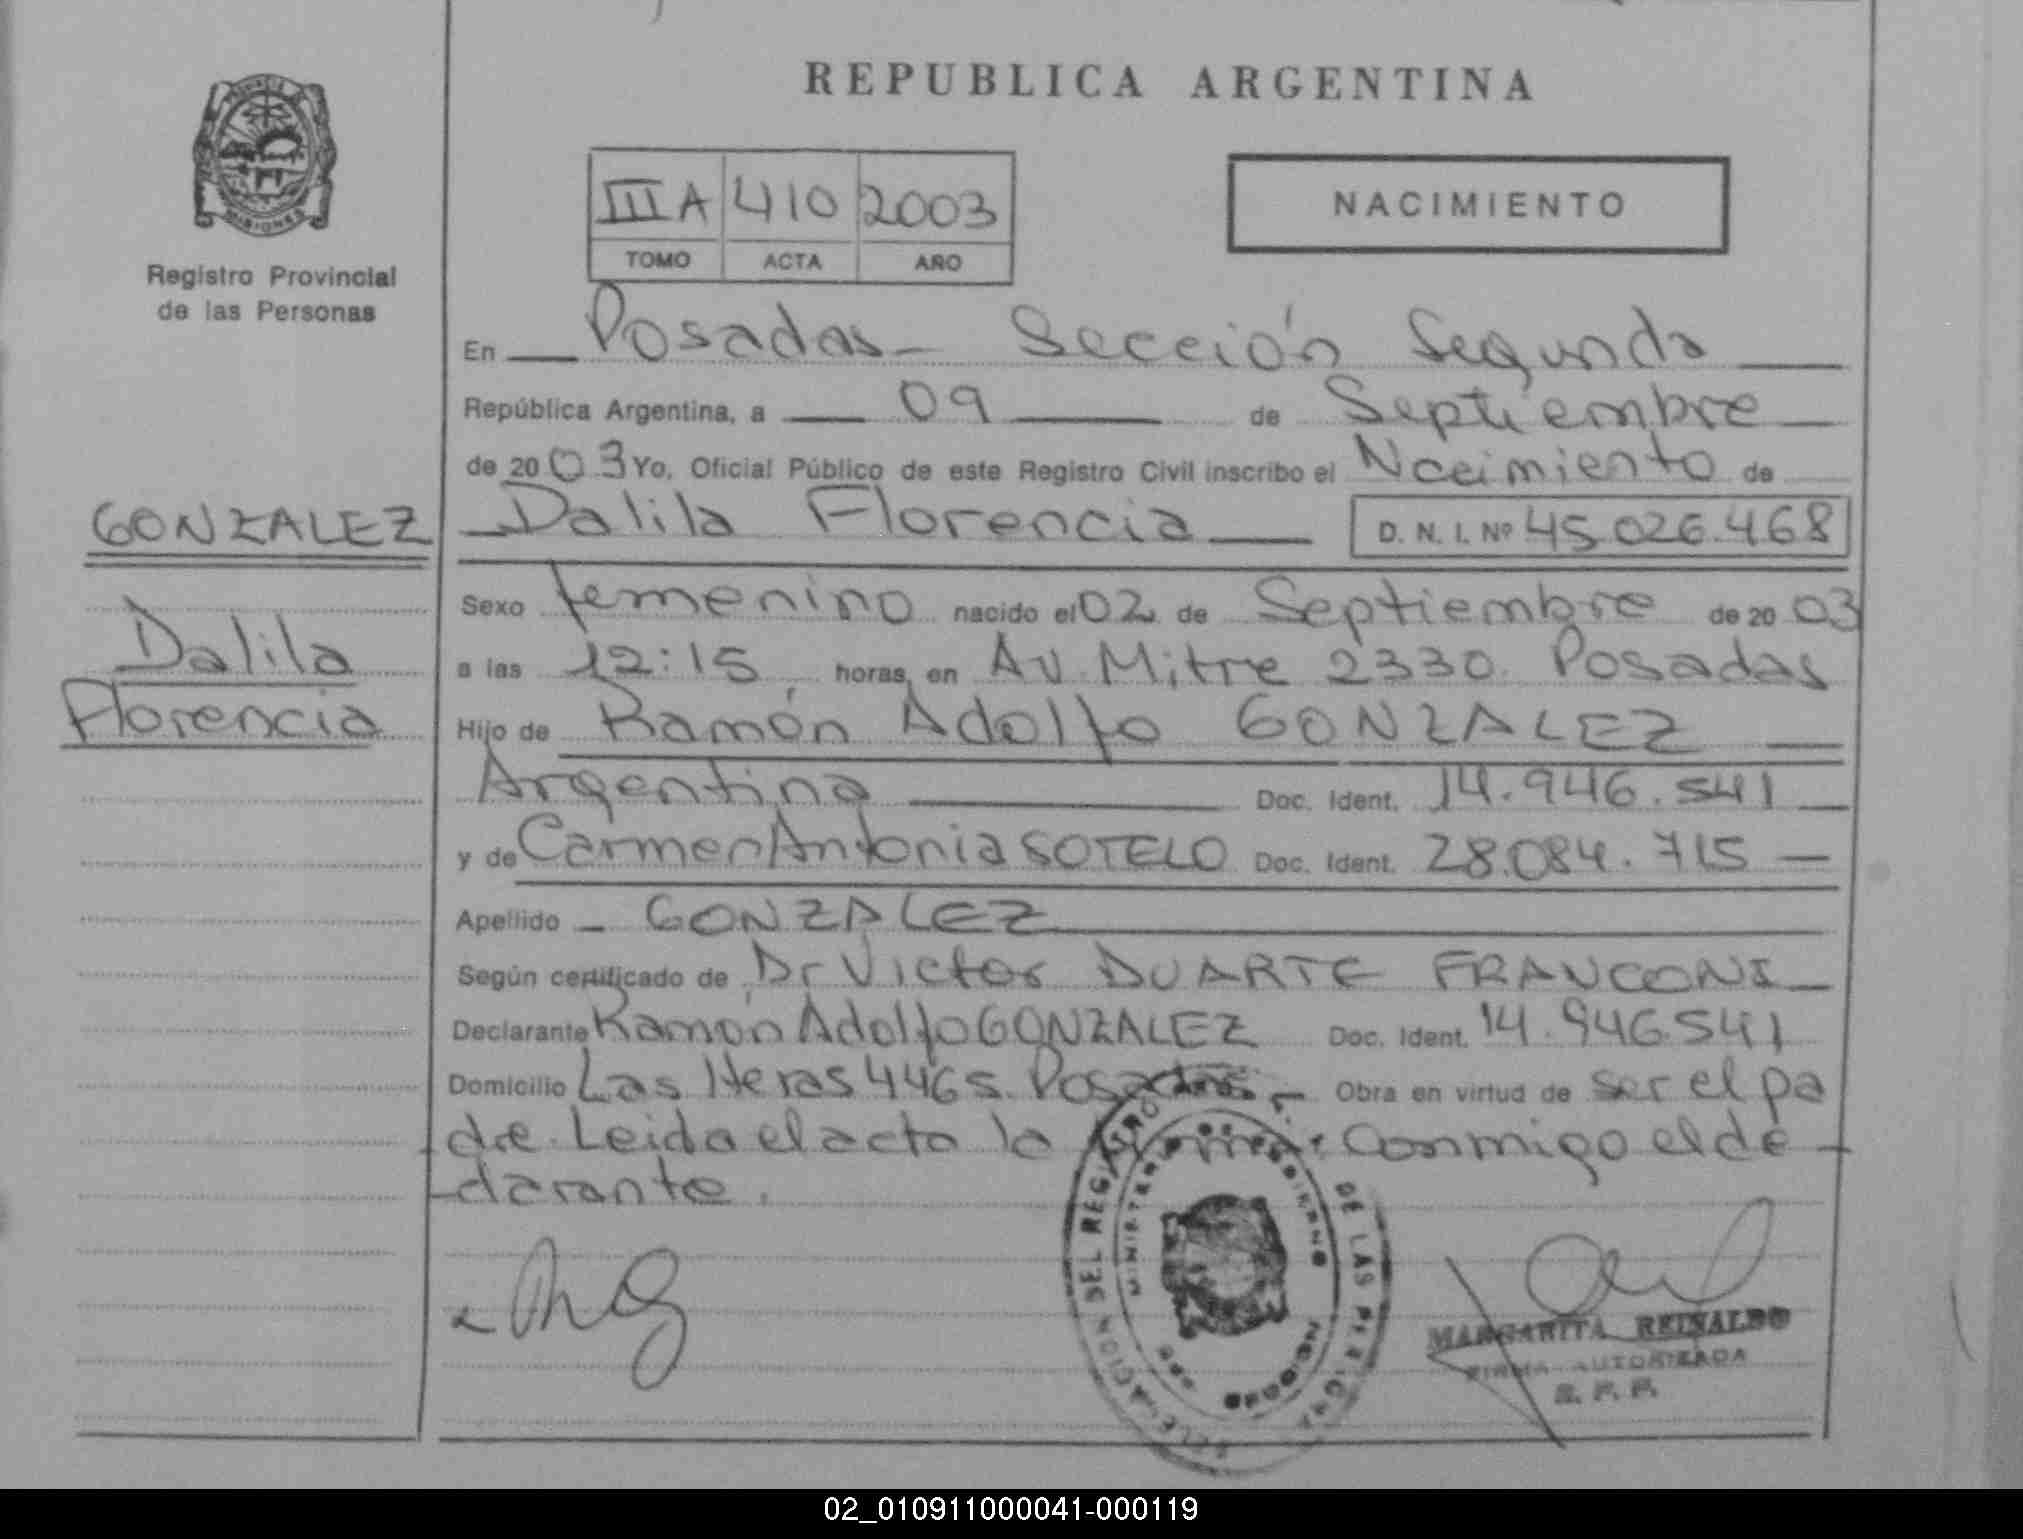 REPUBLICA ARGENTINA
PROVINCIA DE
MISIONES
Registro Provincial
de las Personas
III A 410 2003
TOMO ACTA AÑO
NACIMIENTO
En Posadas - Sección Segunda
República Argentina, a 09 de Septiembre
de 2003 Yo, Oficial Público de este Registro Civil inscribo el Nacimiento de
GONZALEZ
Dalila Florencia D. N. I. Nº 45.026.468
Dalila
Florencia
Sexo femenino nacido el 02 de Septiembre de 20 03
a las 12:15 horas, en Av. Mitre 2330. Posadas
Hijo de Ramón Adolfo GONZALEZ
Argentina Doc. Ident. 14.946.541
y de Carmen Antonia SOTELO Doc. Ident. 28.084.715
Apellido - GONZALEZ
Según certificado de Dr Victor DUARTE FRANCONI
Declarante Ramón Adolfo GONZALEZ Doc. Ident. 14.946.541
Domicilio Las Heras 4465. Posadas. - Obra en virtud de ser el pa
dre. Leida el acta la conmigo el de
clarante.
DEL REGISTRO DE LAS
MARGARITA REINALDO
FIRMA AUTORIZADA
R. P. P.
02_010911000041-000119